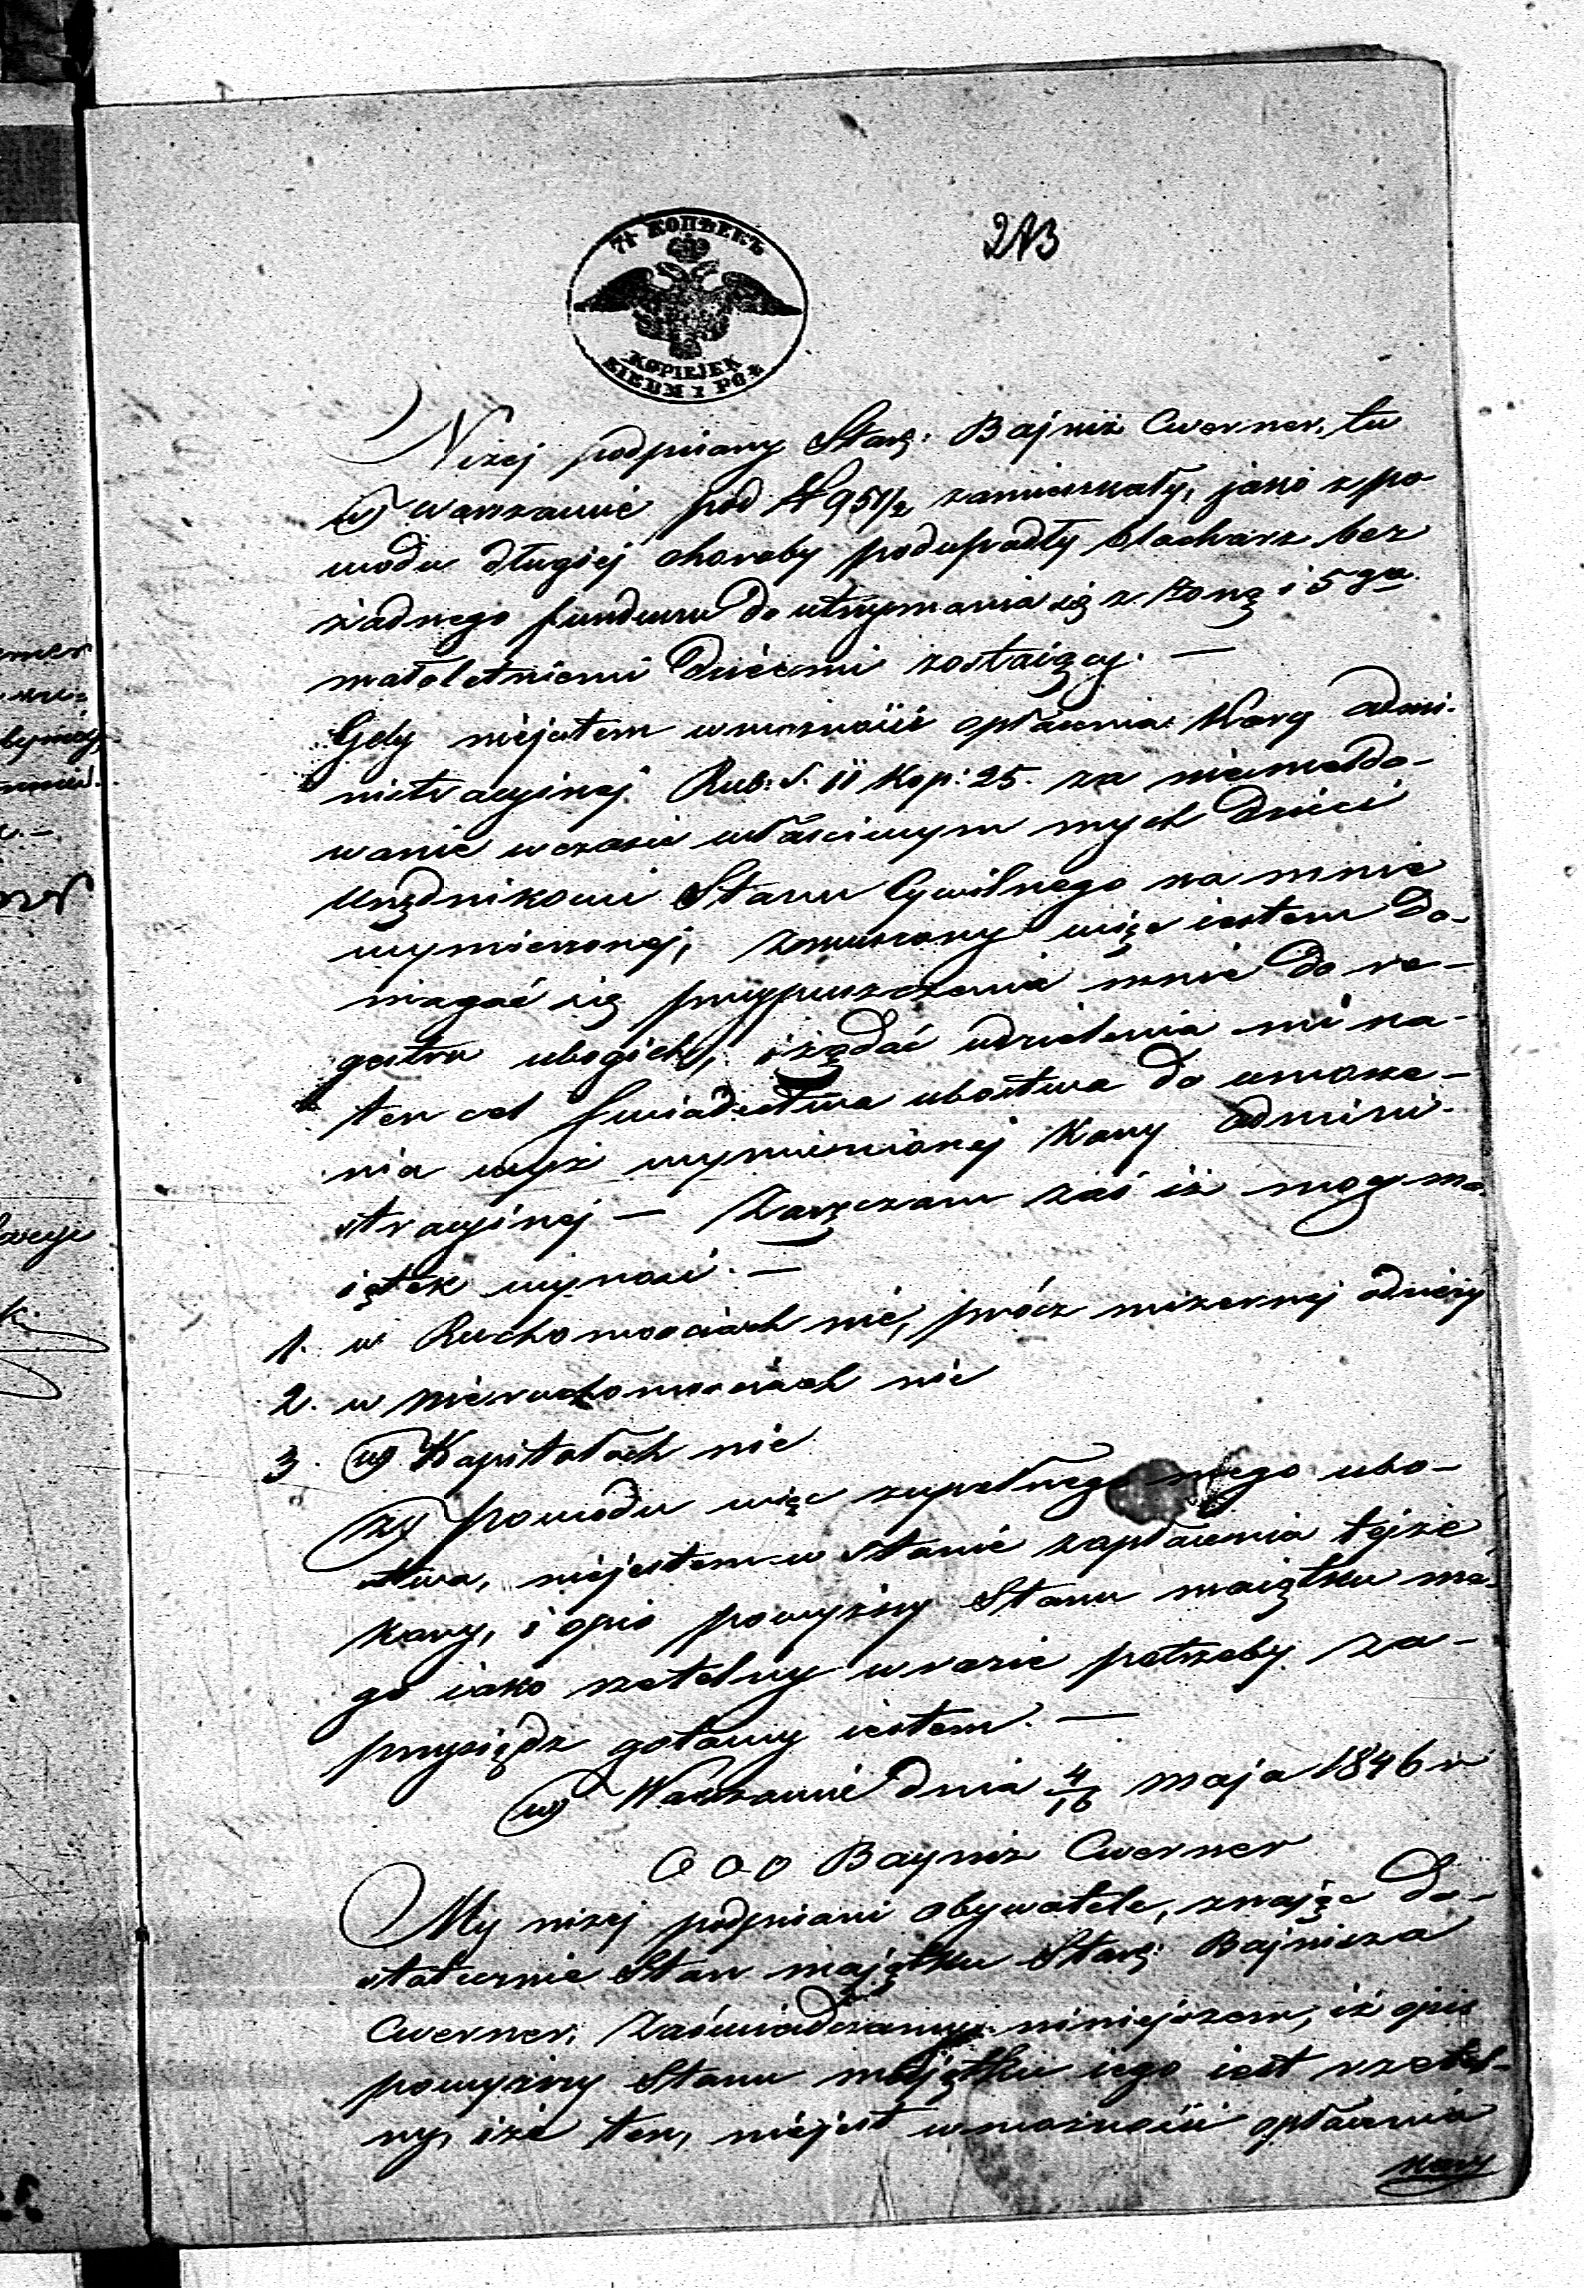 7½ КОПѢЕКЪ
KOPIEJEK
SIEDM I PÓŁ
273
Niżej podpisany Starz: Bajnisz Cwerner, tu
w Warszawie pod N 951/2 zamieszkały, jako z po-
wodu długiej choroby podupadły blacharz bez
żadnego funduszu do utrzymania się z żoną i 5ga
małoletniemi dziećmi zostaiący. —
Gdy niejestem wmożności opłacenia kary admi-
nistracyjnej Rub: S. 11 Kop: 25. za niemeldo-
wanie wczasie właściwym mych dzieci
Urzędnikowi Stanu Cywilnego na mnie
wymierzonej, zmuszony więc iestem do-
magać się przypuszczenia mnie do re-
gestru ubogich, i żądać udzielenia mi na
ten cel świadectwa ubóstwa do umorze-
nia wyż wymienionej kary admini-
stracyjnej — Zaręczam zaś iż mój ma-
iątek wynosi. —
1. w Ruchomościach nic, prócz mizernej odzieży
2. w nieruchomościach nic
3. w Kapitałach nic
Z powodu więc zupełnego mego ubó-
stwa, niejestem w stanie zapłacenia tejże
kary, i opis powyższy Stanu maiątku me-
go iako rzetelny wrazie potrzeby za-
przysiądz gotowy iestem. —
w Warszawie dnia 4/16 maja 1846 r
OOO Baynisz Cwerner
My niżej podpisani obywatele, znając do-
statecznie Stan majątku Starz: Bajnisza
Cwerner, Zaświadczamy niniejszem, iż opis
powyższy Stanu majątku iego iest rzetel-
ny, iże ten, niejest wmożności opłacenia
kary